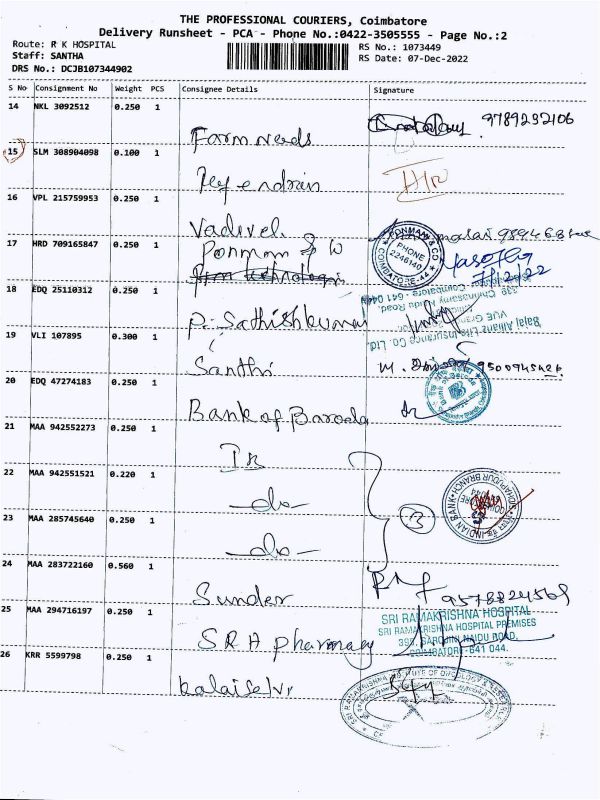 THE PROFESSIONAL COURIERS, Coimbatore
Delivery Runsheet - PCA - Phone No.:0422-3505555 - Page No.:2
Route: R K HOSPITAL
RS No.: 1073449
Staff: SANTHA
RS Date: 07-Dec-2022
DRS No.: DCJB107344902
S No Consignment No Weight PCS Consignee Details Signature
14 NKL 3092512 0.250 1 9789292106
Farm needs
15 SLM 308904098 0.100 1
16 VPL 215759953 0.250 1
Vadivel
17 HRD 709165847 0.250 1
PHONE
2246140
COIMBATORE-44
7/12/22
18 EDQ 25110312 0.250 1
P. Sathishkumar
Bajaj Allianz Life Insurance Co. Ltd.
19 VLI 107895 0.300 1
Santhi
9500945426
20 EDQ 47274183 0.250 1
Bank of Baroda
21 MAA 942552273 0.250 1
IB
22 MAA 942551521 0.220 1
-do-
INDIAN BANK
23 MAA 285745640 0.250 1
-do-
24 MAA 283722160 0.560 1
Sunder
9578824569
25 MAA 294716197 0.250 1
SRH pharmacy
SRI RAMAKRISHNA HOSPITAL
SRI RAMAKRISHNA HOSPITAL PREMISES
395, SAROJINI NAIDU ROAD,
COIMBATORE-641 044.
26 KRR 5599798 0.250 1
Kalaiselvi